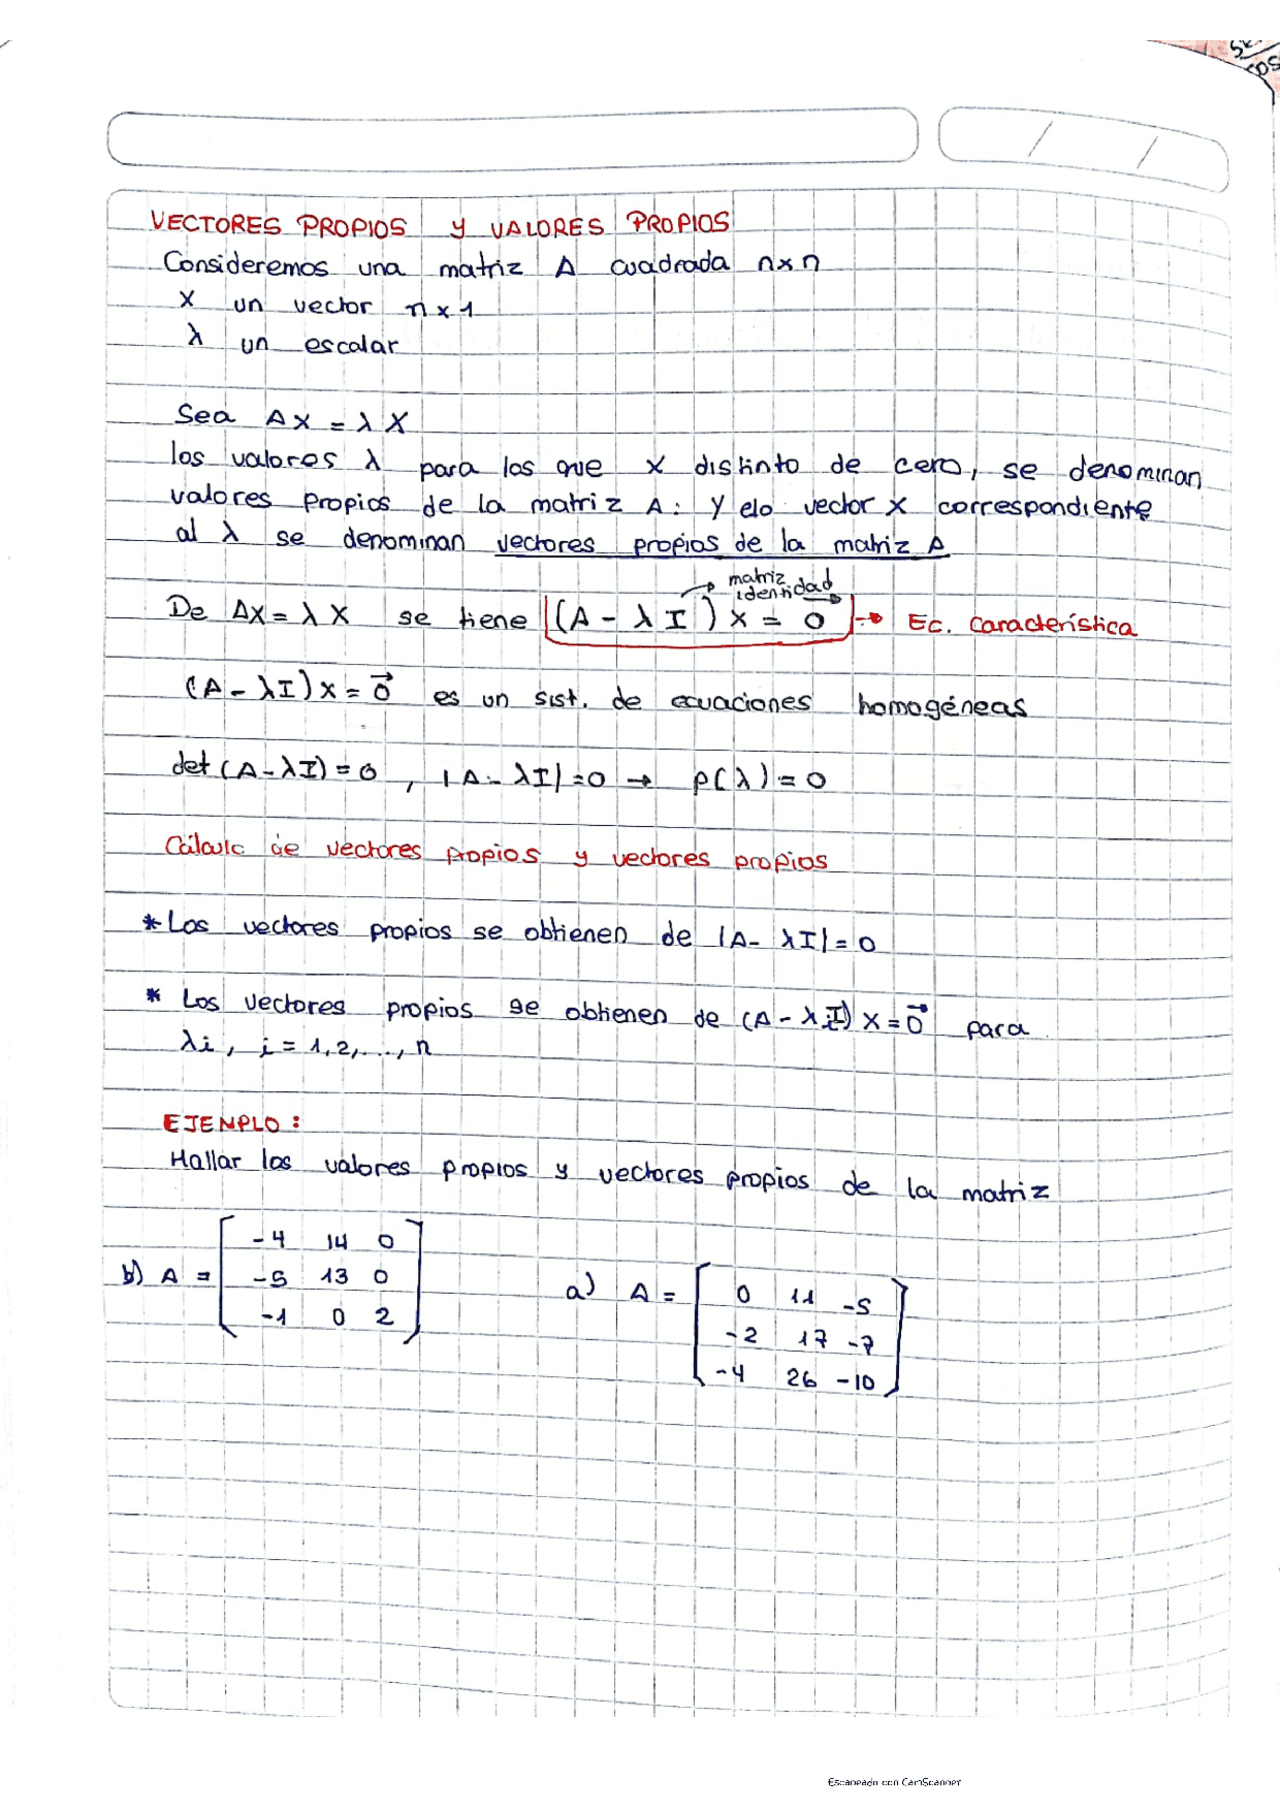 VECTORES PROPIOS y VALORES PROPIOS
Consideremos una matriz A cuadrada nxn
x un vector n x 1
λ un escalar
Sea AX = λX
los valores λ para los que x distinto de cero, se denominan
valores propios de la matriz A: y elo vector x correspondiente
al λ se denominan vectores propios de la matriz A
matriz
identidad
De AX = λX se tiene (A - λI)x = 0⃗ → Ec. característica
(A - λI)x = 0⃗ es un sist. de ecuaciones homogéneas
det(A-λI)=0, |A-λI|=0 → p(λ)=0
Cálculo de vectores propios y vectores propios
* Los vectores propios se obtienen de |A-λI|=0
* Los vectores propios se obtienen de (A-λiI)x=0⃗ para
λi, i=1,2,...,n
EJENPLO:
Hallar los valores propios y vectores propios de la matriz
b) A = [ -4 14 0
-5 13 0
-1 0 2 ]
a) A = [ 0 11 -5
-2 17 -7
-4 26 -10 ]
Escaneado con CamScanner